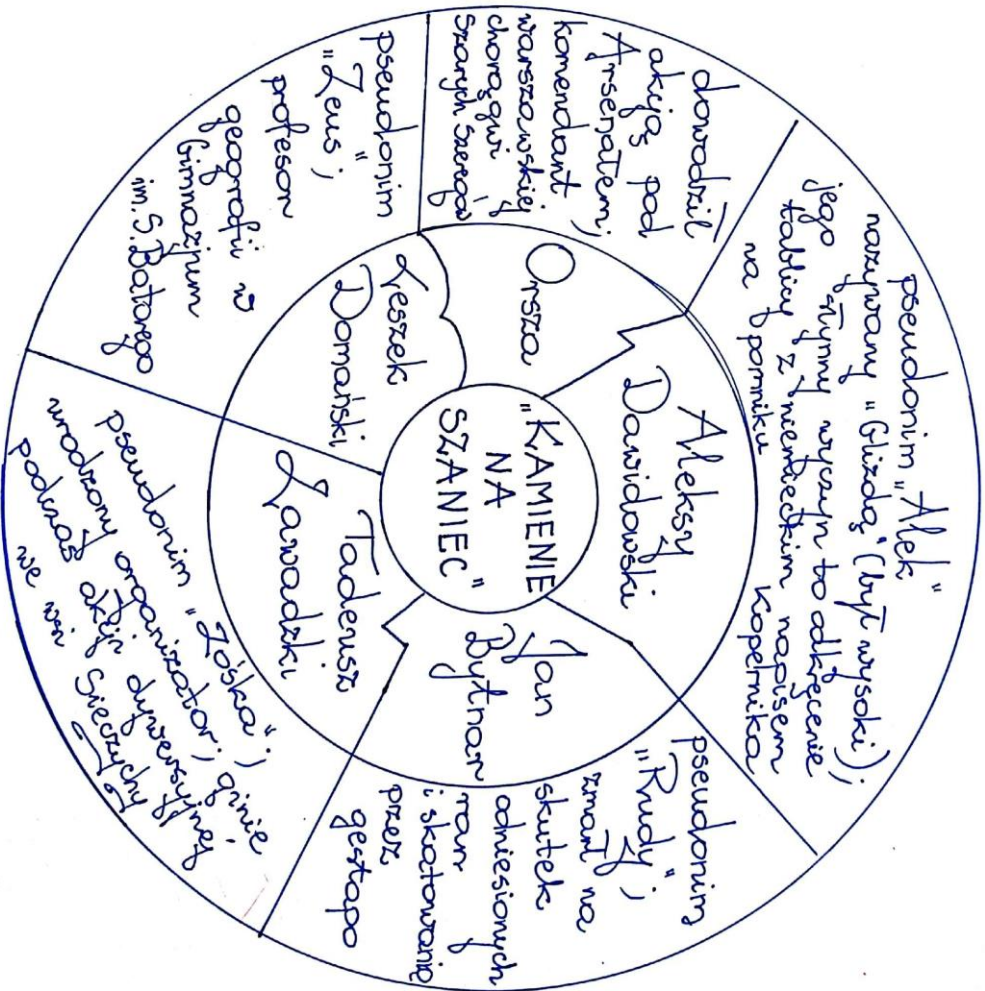 "KAMIENIE
NA
SZANIEC"
Aleksy
Dawidowski
pseudonim "Alek"
nazywany "Glizdą" (był wysoki);
jego słynny wyczyn to odkręcenie
tablicy z niemieckim napisem
na pomniku Kopernika
Jan
Bytnar
pseudonim
"Rudy";
zmarł na
skutek
odniesionych
ran
i skatowania
przez
gestapo
Tadeusz
Zawadzki
pseudonim "Zośka";
urodzony organizator; ginie
podczas akcji dywersyjnej
we wsi Sieczychy
Leszek
Domański
pseudonim
"Zeus";
profesor
geografii w
Gimnazjum
im. S. Batorego
Orsza
dowodził
akcją pod
Arsenałem;
komendant
warszawskiej
chorągwi
Szarych Szeregów